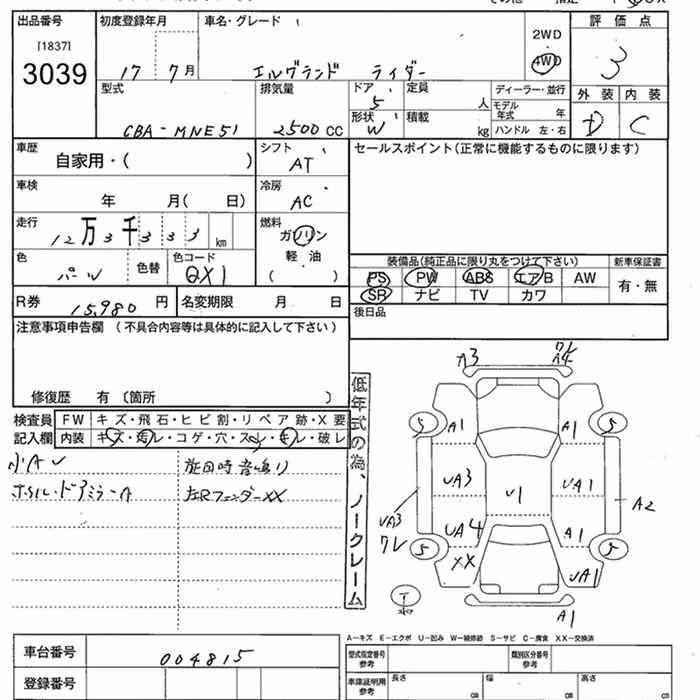 出品番号 初度登録年月 車名・グレード 評価点
[1837]
3039
17 7月 エルグランド ライダー
2WD
4WD
3
型式 排気量 ドア 定員 ディーラー・並行 外装 内装
CBA-MNE51 2500CC 5 人
モデル年式 年
形状 積載
W kg ハンドル 左・右
D C
車歴 シフト セールスポイント(正常に機能するものに限ります)
自家用・( ) AT
車検 冷房
年 月( 日) AC
走行 燃料
12万3千333km ガソリン
軽油
( )
色 色替 色コード
パール QX1
装備品(純正品に限り丸をつけて下さい) 新車保証書
PS PW ABS エアB AW 有・無
SR ナビ TV カワ
R券 15,980円 名変期限 月 日
後日品
注意事項申告欄 (不具合内容等は具体的に記入して下さい)
修復歴 有 〔箇所 〕
検査員記入欄
FW キズ・飛石・ヒビ割・リペア跡・X要
内装 キズ・汚レ・コゲ・穴・スレ・キレ・破レ
小Aレ 旋回時音鳴り
ホイル・ドアミラーA 左Rフェンダー××
低年式の為、ノークレーム
A3
A4
A1 A1
5 5
UA3 U1 UA1
A2
UA3
UA4 A1
5 5
XX UA1
A1
A-キズ E-エクボ U-凹み W-補修跡 S-サビ C-腐食 XX-交換済
車台番号 004815
登録番号
型式指定番号 参考 類別区分番号 参考
車庫証明用 参考 長さ cm 幅 cm 高さ cm